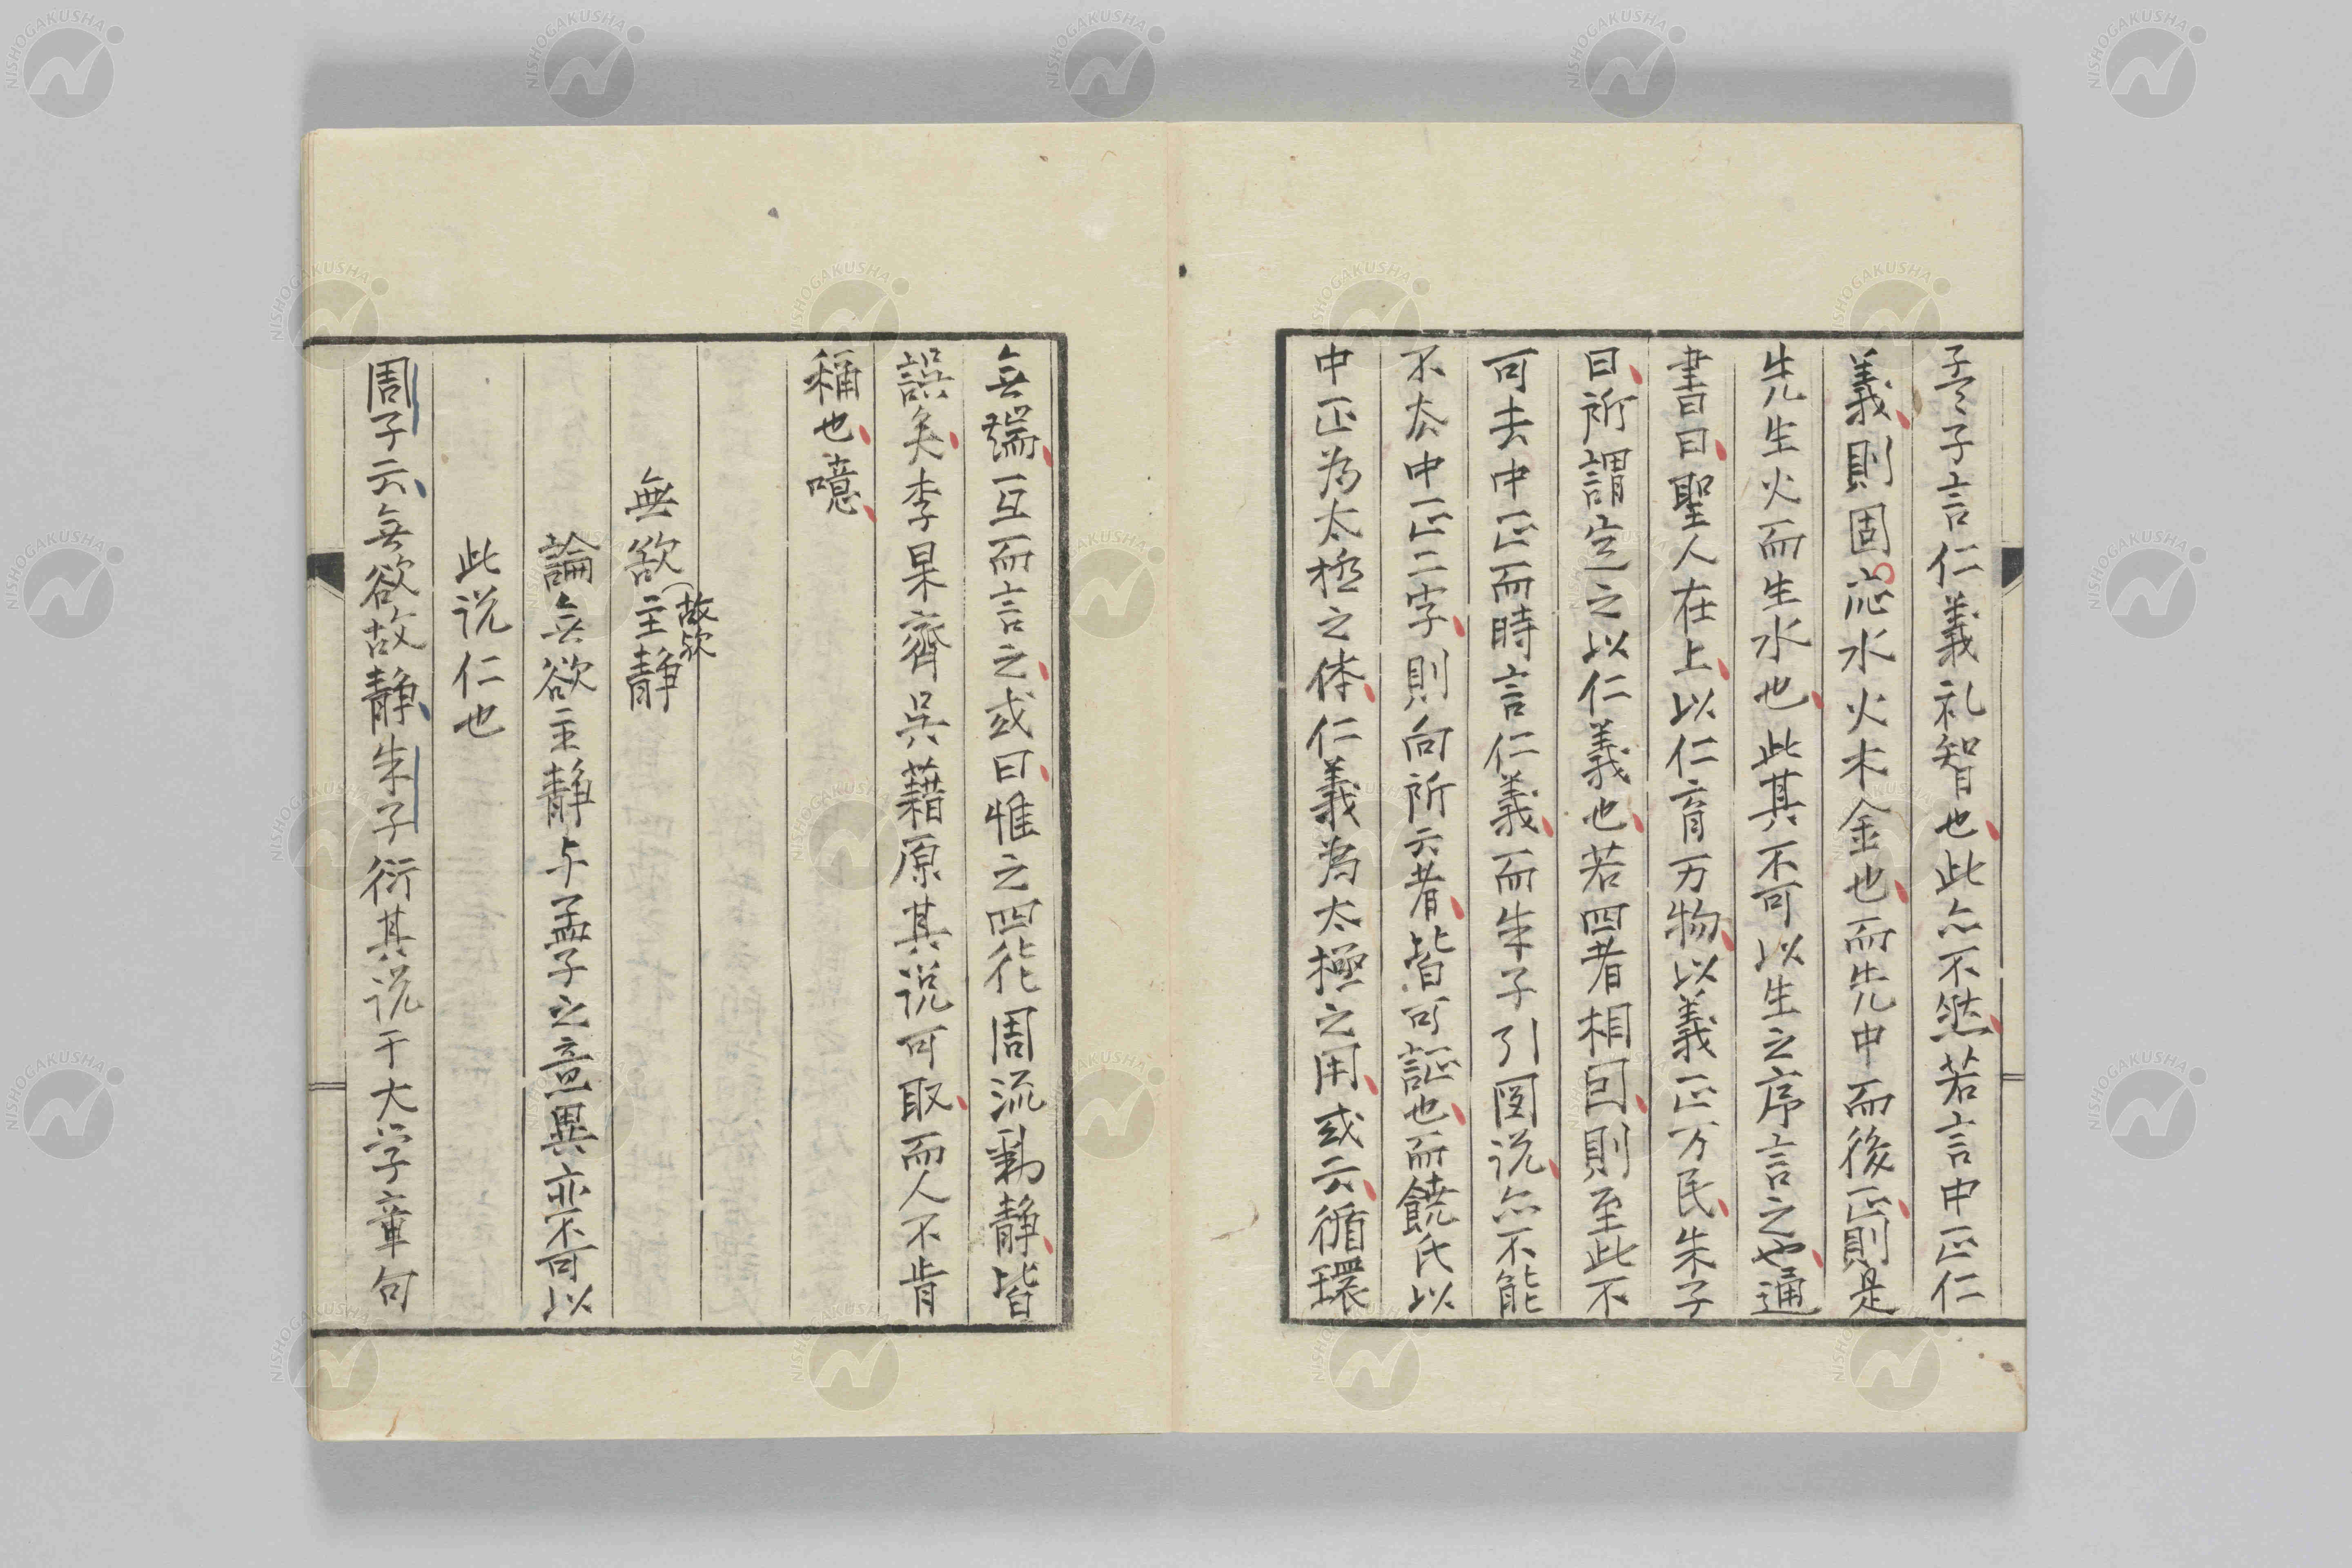 孟子言仁義礼智也此亦不然若言中正仁
義則固沿水火木金也而先中而後正則是
先生火而生水也此其不可以生之序言之也通
書曰聖人在上以仁育万物以義正万民朱子
曰所謂定之以仁義也若四者相回則至此不
可去中正而時言仁義而朱子引図说亦不能
不去中正二字則向所云者皆可証也而饒氏以
中正為太極之体仁義為太極之用或云循環
無端互而言之或曰惟之四化周流動静皆
誤矣李果齋呉藉原其说可取而人不肯
称也噫
無欲故主静
故欲
論無欲主静与孟子之意異亦不可以
此说仁也
周子云無欲故静朱子衍其说于大学章句
NISHOGAKUSHA